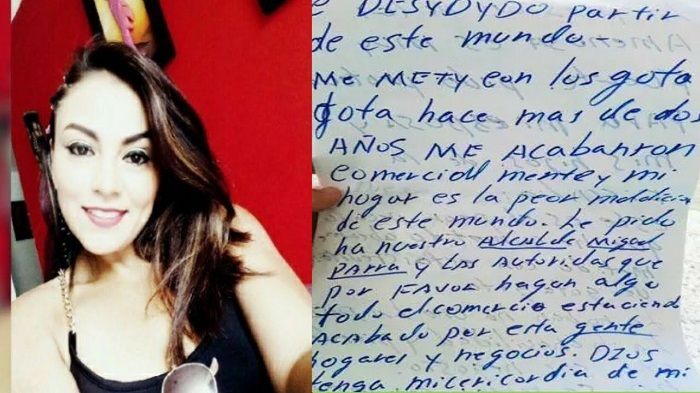 e DESYDYDO partir
de este mundo.
ME METY con los gota
gota hace mas de dos
AÑOS ME Acabanron
comercial mente y mi
hogar es la peor maldicion
de este mundo. Le pido
ha nuestro Alcalde Miguel
PARRA y las AUTORIDAS que
por FAVOR hagan algo
todo el comercio esta siend
ACABADO por esta gente
hogares y negocios. DIOS
tenga misericordia de mi